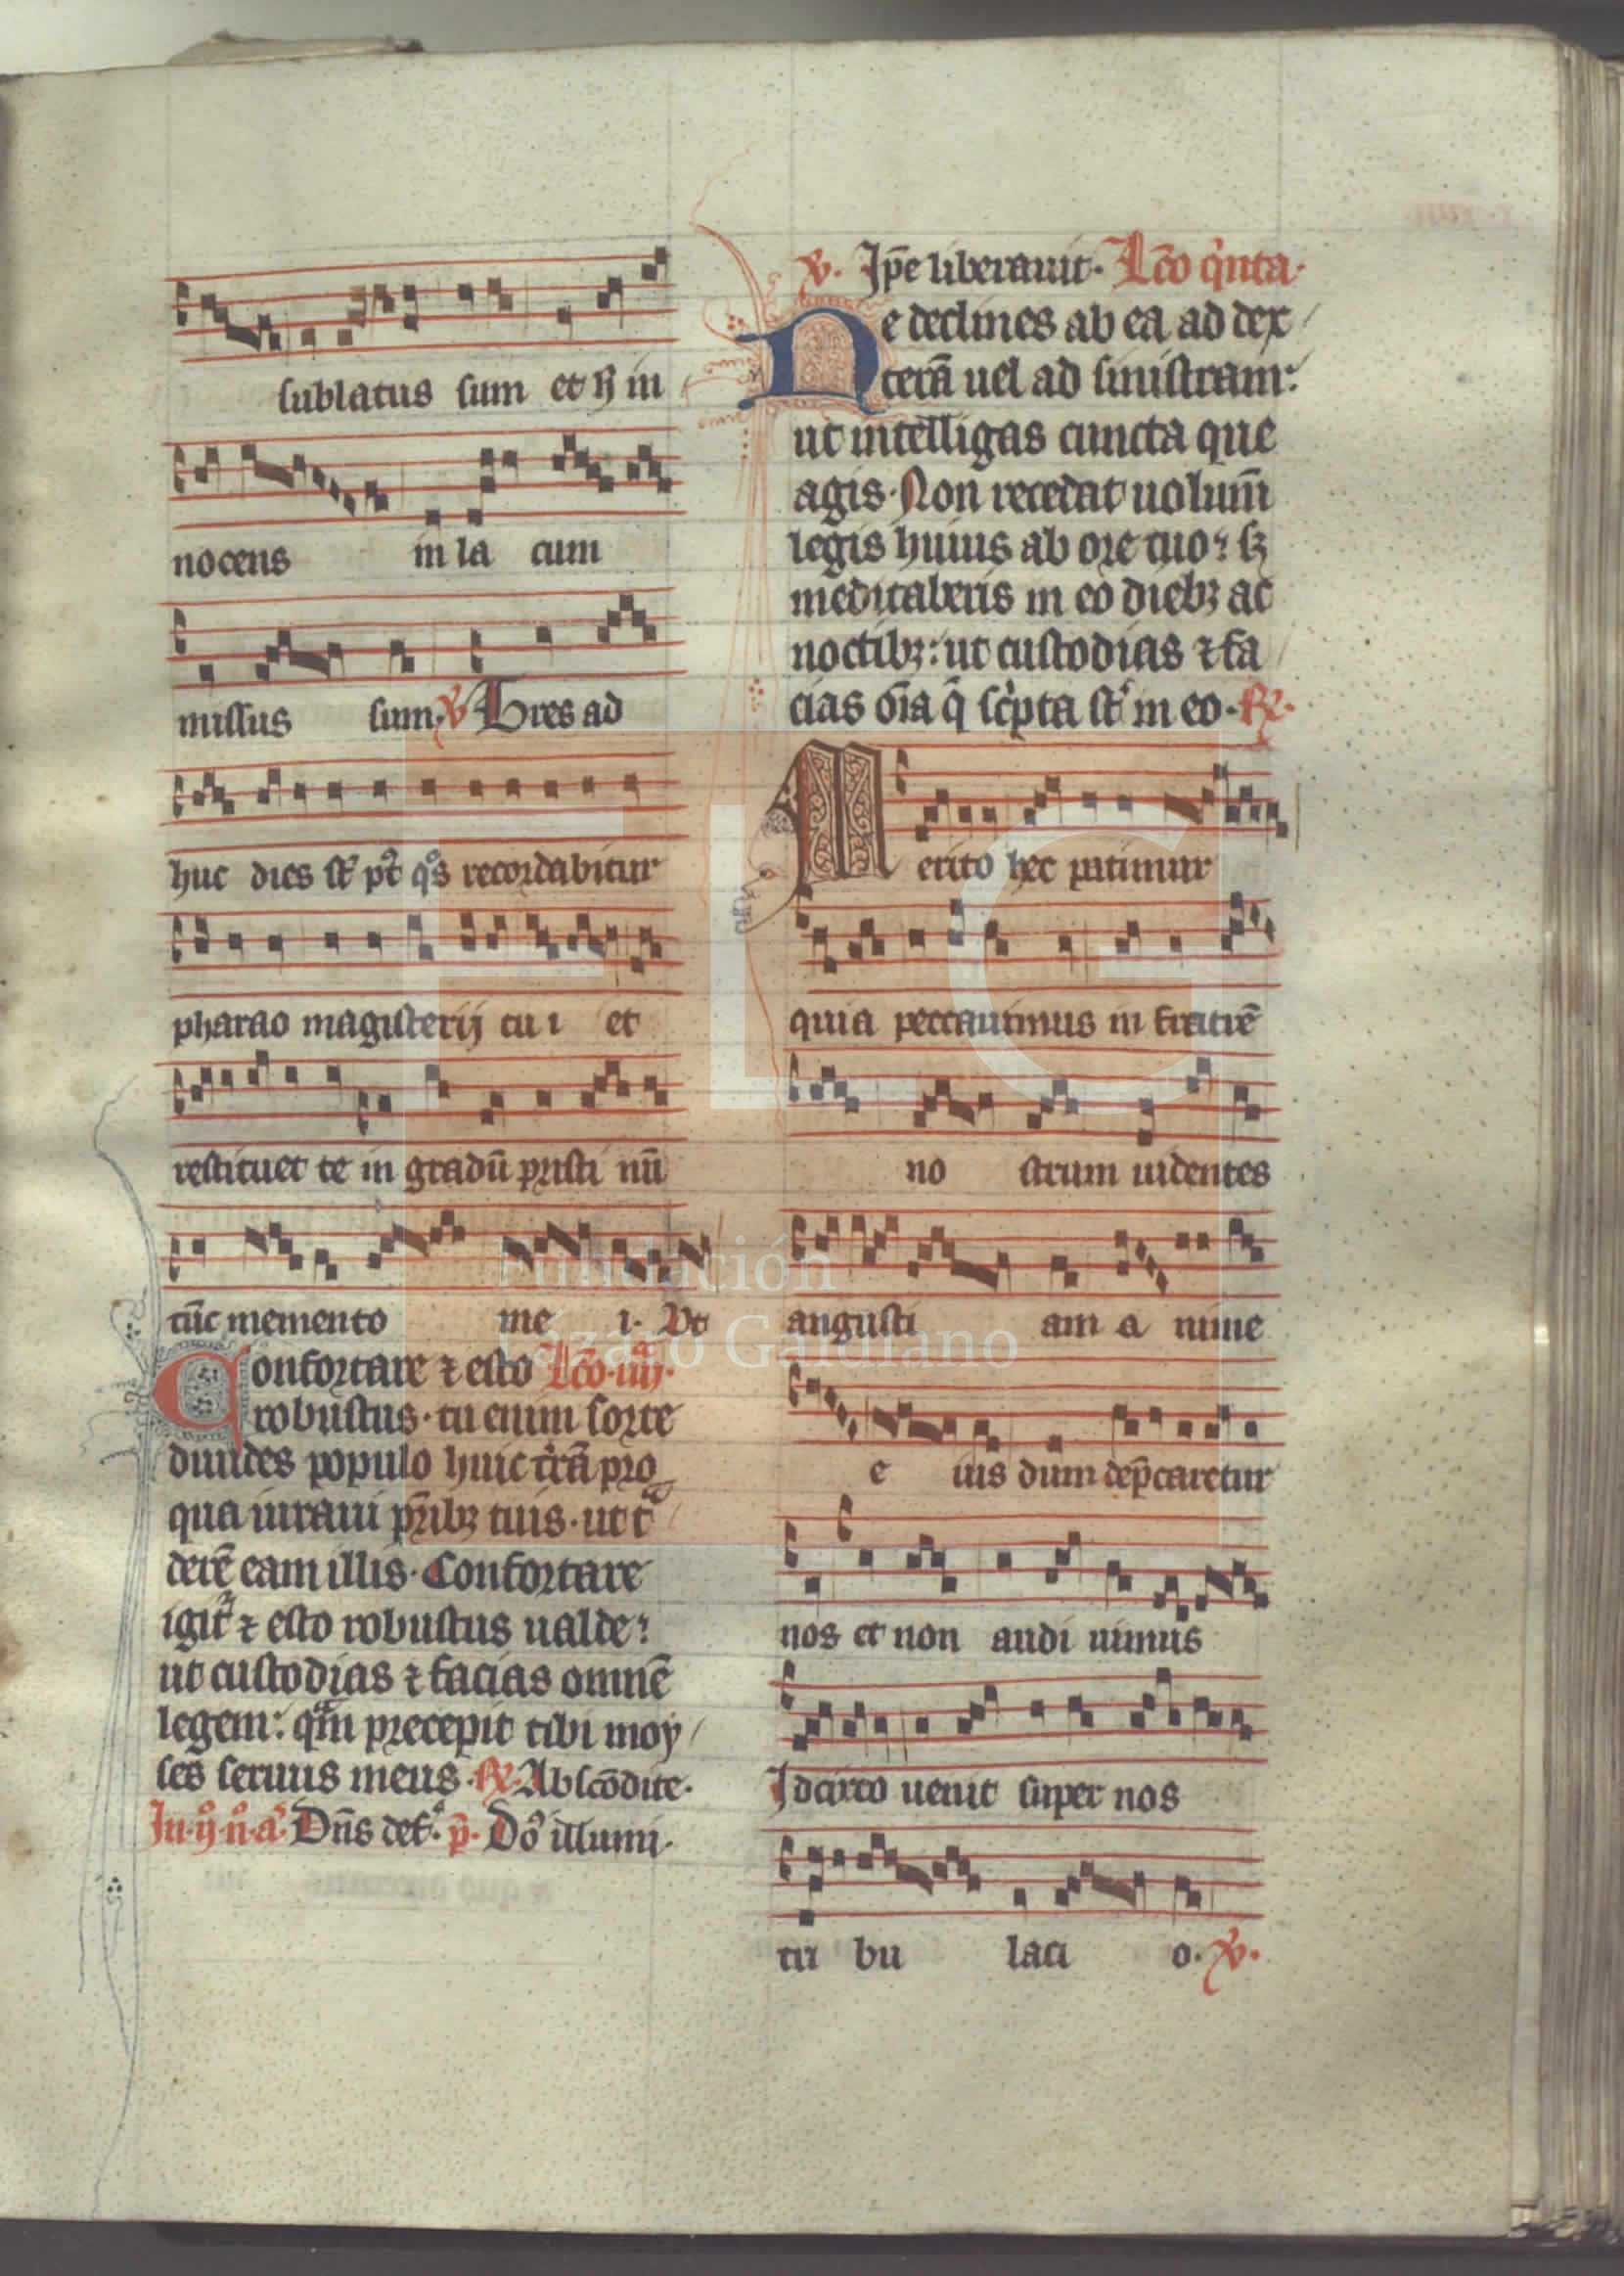 sublatus sum et h̄ in
nocens in la cum
missus sum. V̕ Tres ad
huc dies st̄ pt̄ qͦs recordabitur
pharao magisterij tu i et
restituet te in gradū pristi nū
tūc memento me i. Vt
Confortare ⁊ esto Lc̄o. iiij.
robustus. tu enim sorte
diuides populo huic tr̄ā pro
qua iuraui pr̄ibꝫ tuis. ut t̄
derē eam illis. Confortare
igit᷑ ⁊ esto robustus ualde:
ut custodias ⁊ facias omnē
legem: qm̄ precepit tibi moy
ses seruus meus. R̕. Abscōdite.
In. ijͦ. nͦ. a̕. Dn̄s def̄. p̄. Dō illumi.
V̕. Ip̄e liberauit. Lc̄o q̍nta.
Ne declines ab ea ad dex
terā uel ad sinistram:
ut intelligas cuncta que
agis. Non recedat uolum̄
legis huius ab ore tuo: sꝫ
meditaberis in eo diebꝫ ac
noctibꝫ: ut custodias ⁊ fa
cias oīa q̄ sc̍pta st̄ in eo. R̕.
Merito hec patimur
quia peccauimus in fratrē
no strum uidentes
angusti am a nime
e ius dum dep̄caretur
nos et non audi uimus
Idcirco uenit super nos
tri bu laci o. V̕.
Fundación
Lázaro Galdiano
FLG